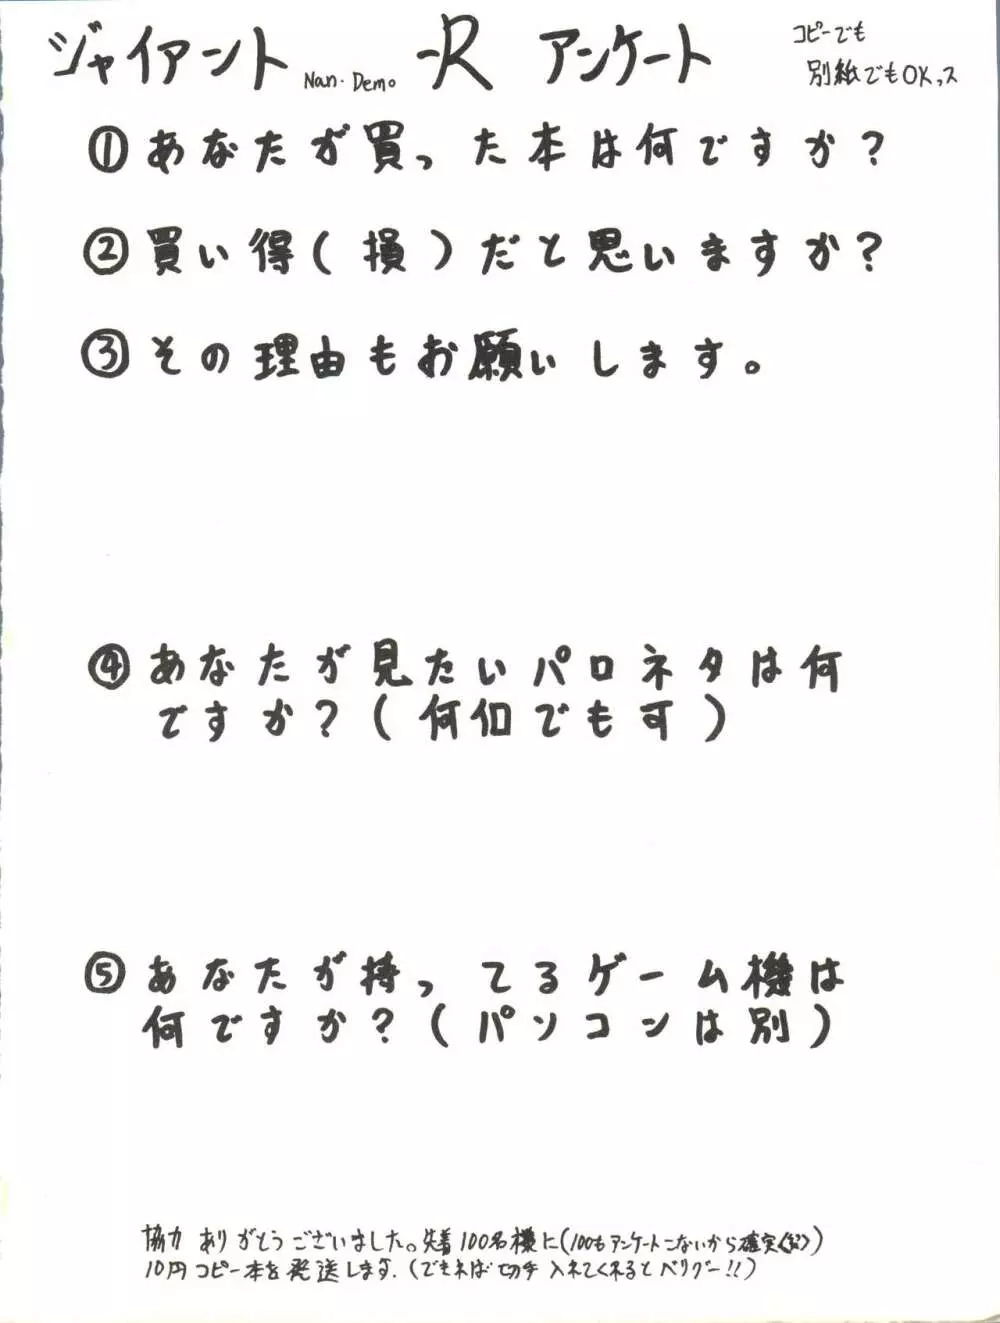 ジャイアント Nan・Demo -R アンケート
コピーでも
別紙でもOKッス
①あなたが買った本は何ですか?
②買い得(損)だと思いますか?
③その理由もお願いします。
④あなたが見たいパロネタは何
ですか?(何個でも可)
⑤あなたが持ってるゲーム機は
何ですか?(パソコンは別)
協力ありがとうございました。先着100名様に(100もアンケートこないから確実)
10円コピー本を発送します.(できれば切手入れてくれるとベリグー!!)